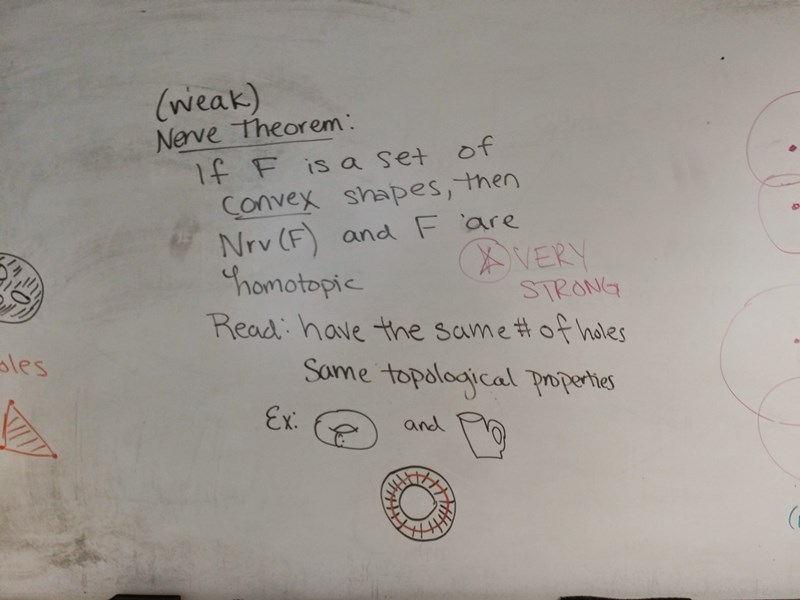 (weak)
Nerve Theorem:
If F is a set of
convex shapes, then
Nrv(F) and F are
homotopic
VERY
STRONG
Read: have the same # of holes
Same topological properties
Ex: and
oles